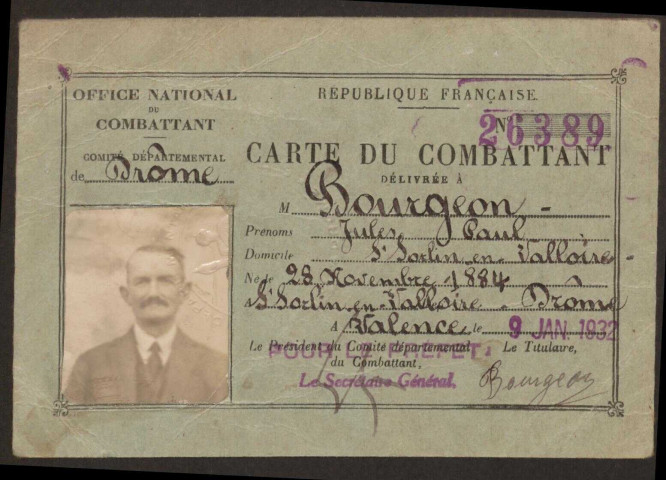 OFFICE NATIONAL
DU
COMBATTANT
COMITÉ DÉPARTEMENTAL
de Drôme
RÉPUBLIQUE FRANÇAISE.
N° 26389
CARTE DU COMBATTANT
DÉLIVRÉE À
M Bourgeon
Prénoms Jules Paul
Domicile St Sorlin-en-Valloire
Né le 28 Novembre 1884
à St Sorlin-en-Valloire - Drôme
A Valence le 9 JAN. 1932
Le Président du Comité départemental
du Combattant,
POUR LE PRÉFET:
Le Secrétaire Général,
Le Titulaire,
Bourgeon